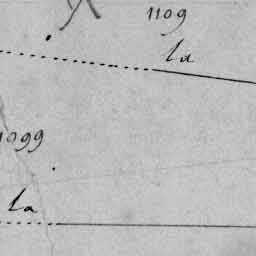 1109
la
1099
la